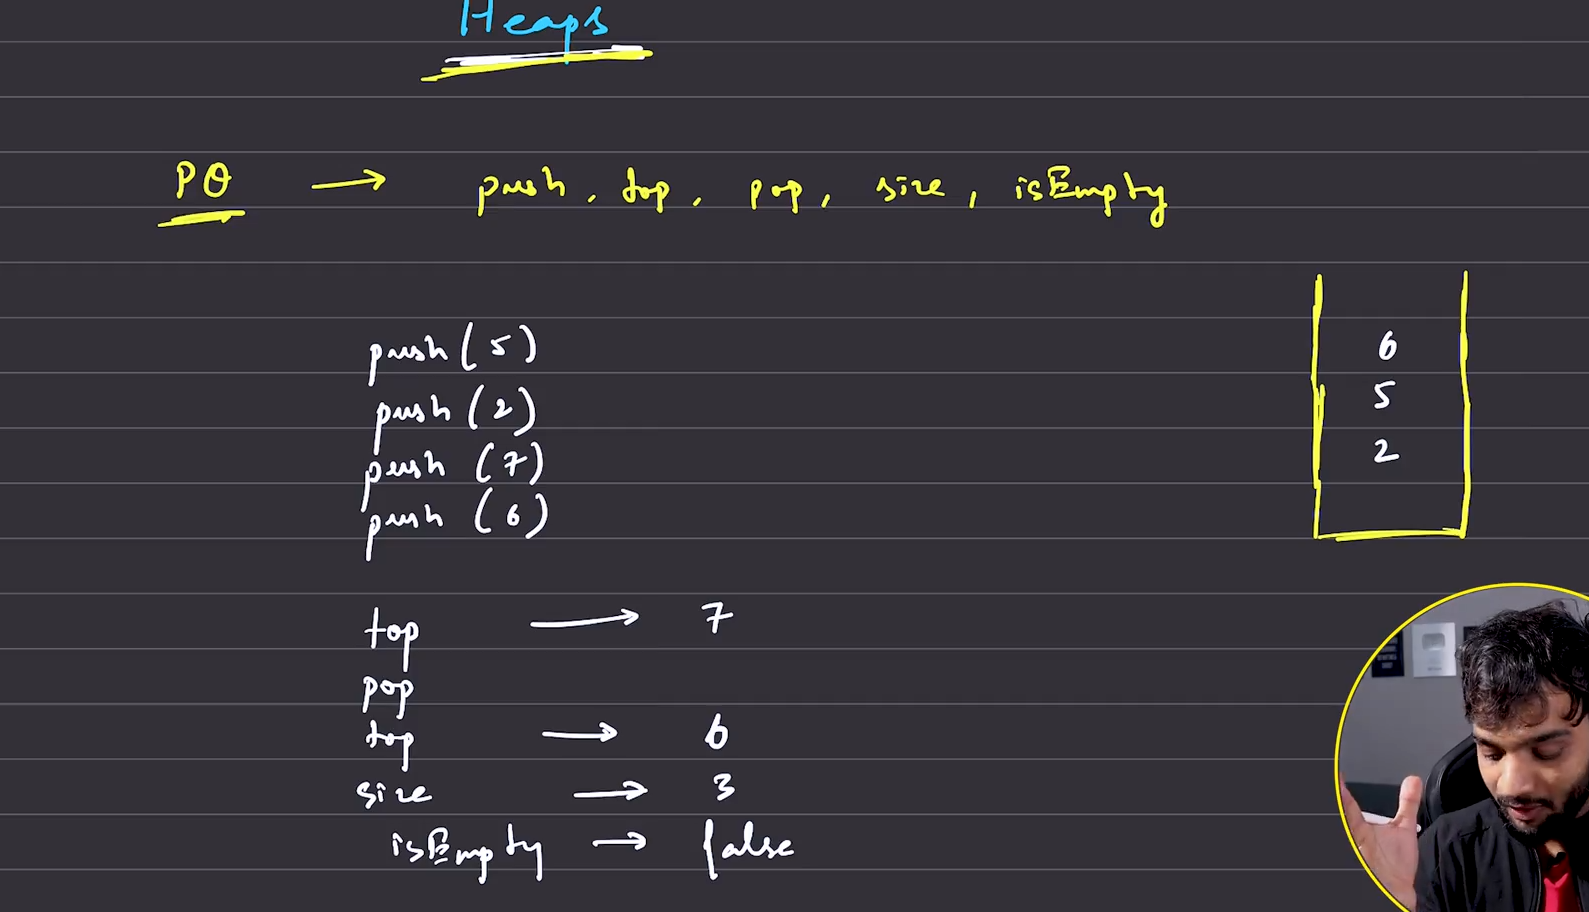 Heaps
PQ → push, top, pop, size, isEmpty
push(5)
push(2)
push (7)
push (6)
6
5
2
top → 7
pop
top → 6
size → 3
isEmpty → false